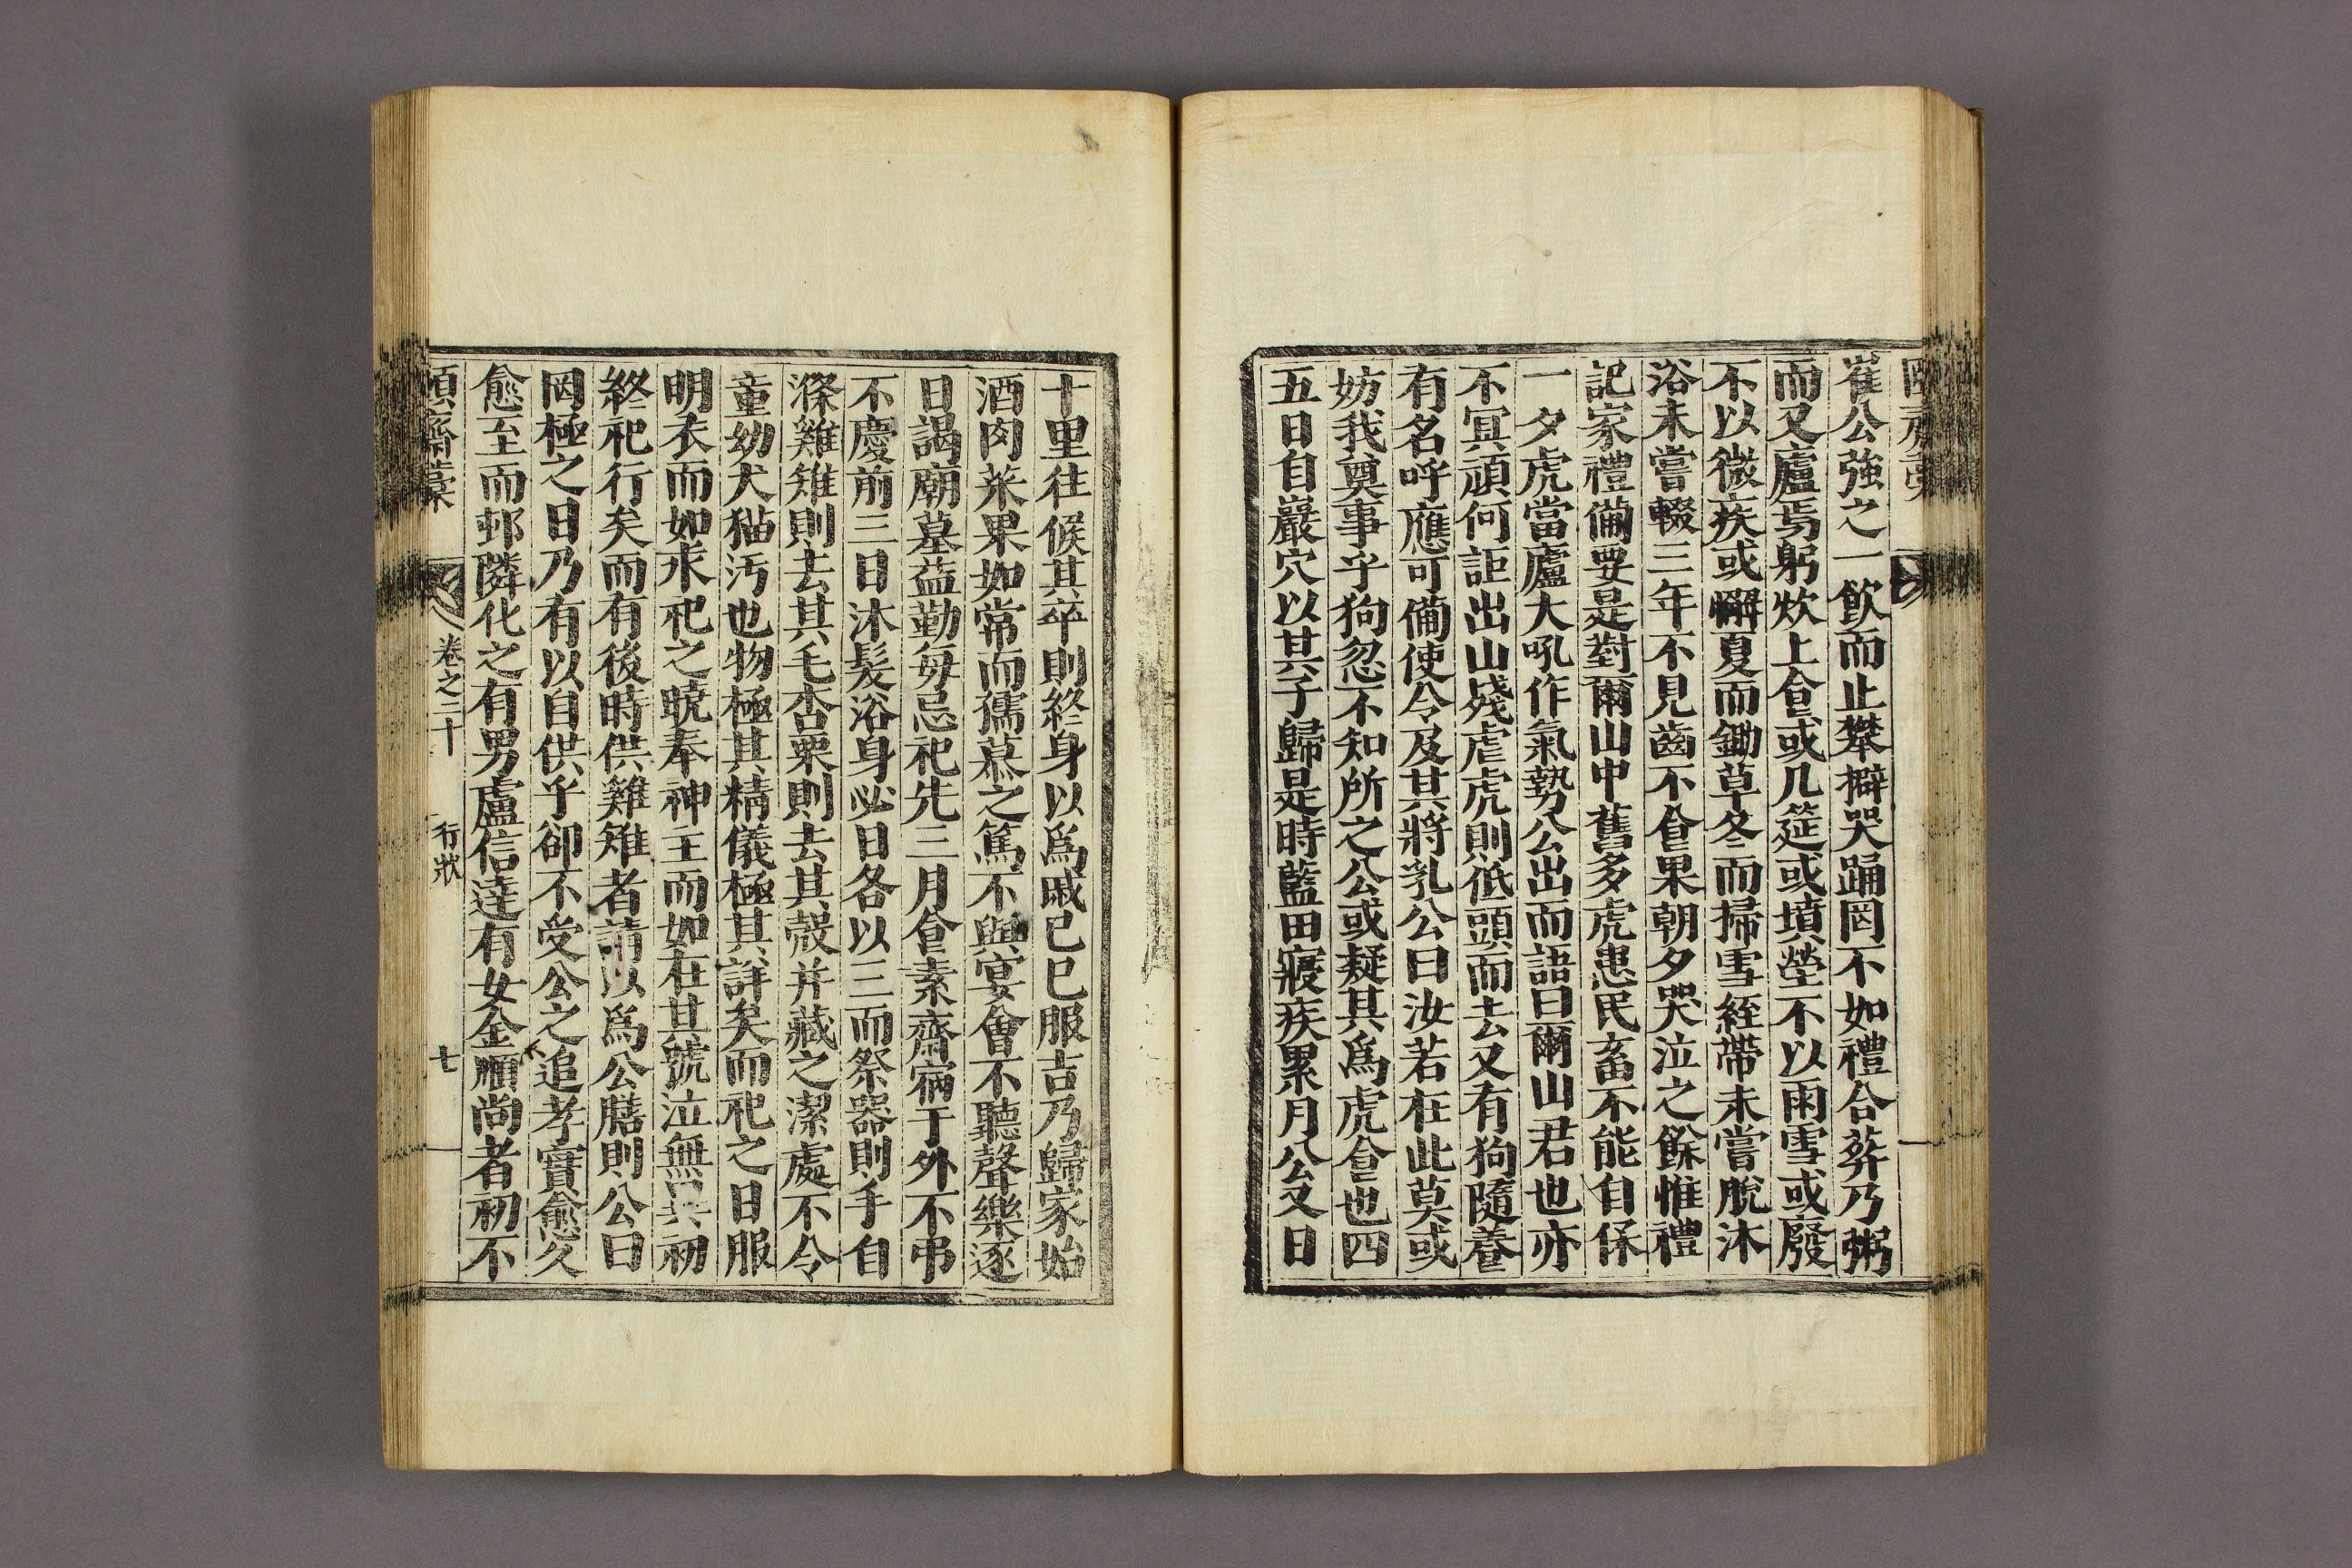 崔公強之一飮而止攀擗哭踊罔不如禮合葬乃粥
而又廬焉躬炊上食或几筵或墳塋不以雨雪或廢
不以微疾或懈夏而鋤草冬而掃雪絰帶未嘗脫沐
浴未嘗輟三年不見齒不食果朝夕哭泣之餘惟禮
記家禮備要是對爾山中舊多虎患民畜不能自保
一夕虎當廬大吼作氣勢公出而語曰爾山君也亦
不冥頑何詎出山殘虐虎則低頭而去又有狗隨養
有名呼應可備使令及其將乳公曰汝若在此莫或
妨我奠事乎狗忽不知所之公或疑其爲虎食也四
五日自巖穴以其子歸是時藍田寢疾累月公又日
十里往候其卒則終身以爲戚已巳服吉乃歸家始
酒肉菜果如常而孺慕之篤不與宴會不聽聲樂逐
日謁廟墓益勤每忌祀先三月食素齋宿于外不弔
不慶前三日沐髮浴身必日各以三而祭器則手自
滌雞雉則去其毛杏栗則去其殼并藏之潔處不令
童幼犬猫汚也物極其精儀極其詳矣而祀之日服
明衣而如求祀之曉奉神主而如在其號泣無異初
終祀行矣而有後時供雞雉者請以爲公膳則公曰
罔極之日乃有以自供乎卻不受公之追孝實愈久
愈至而邨隣化之有男盧信達有女金順尚者初不
頤齋藁 卷之二十 行狀 七